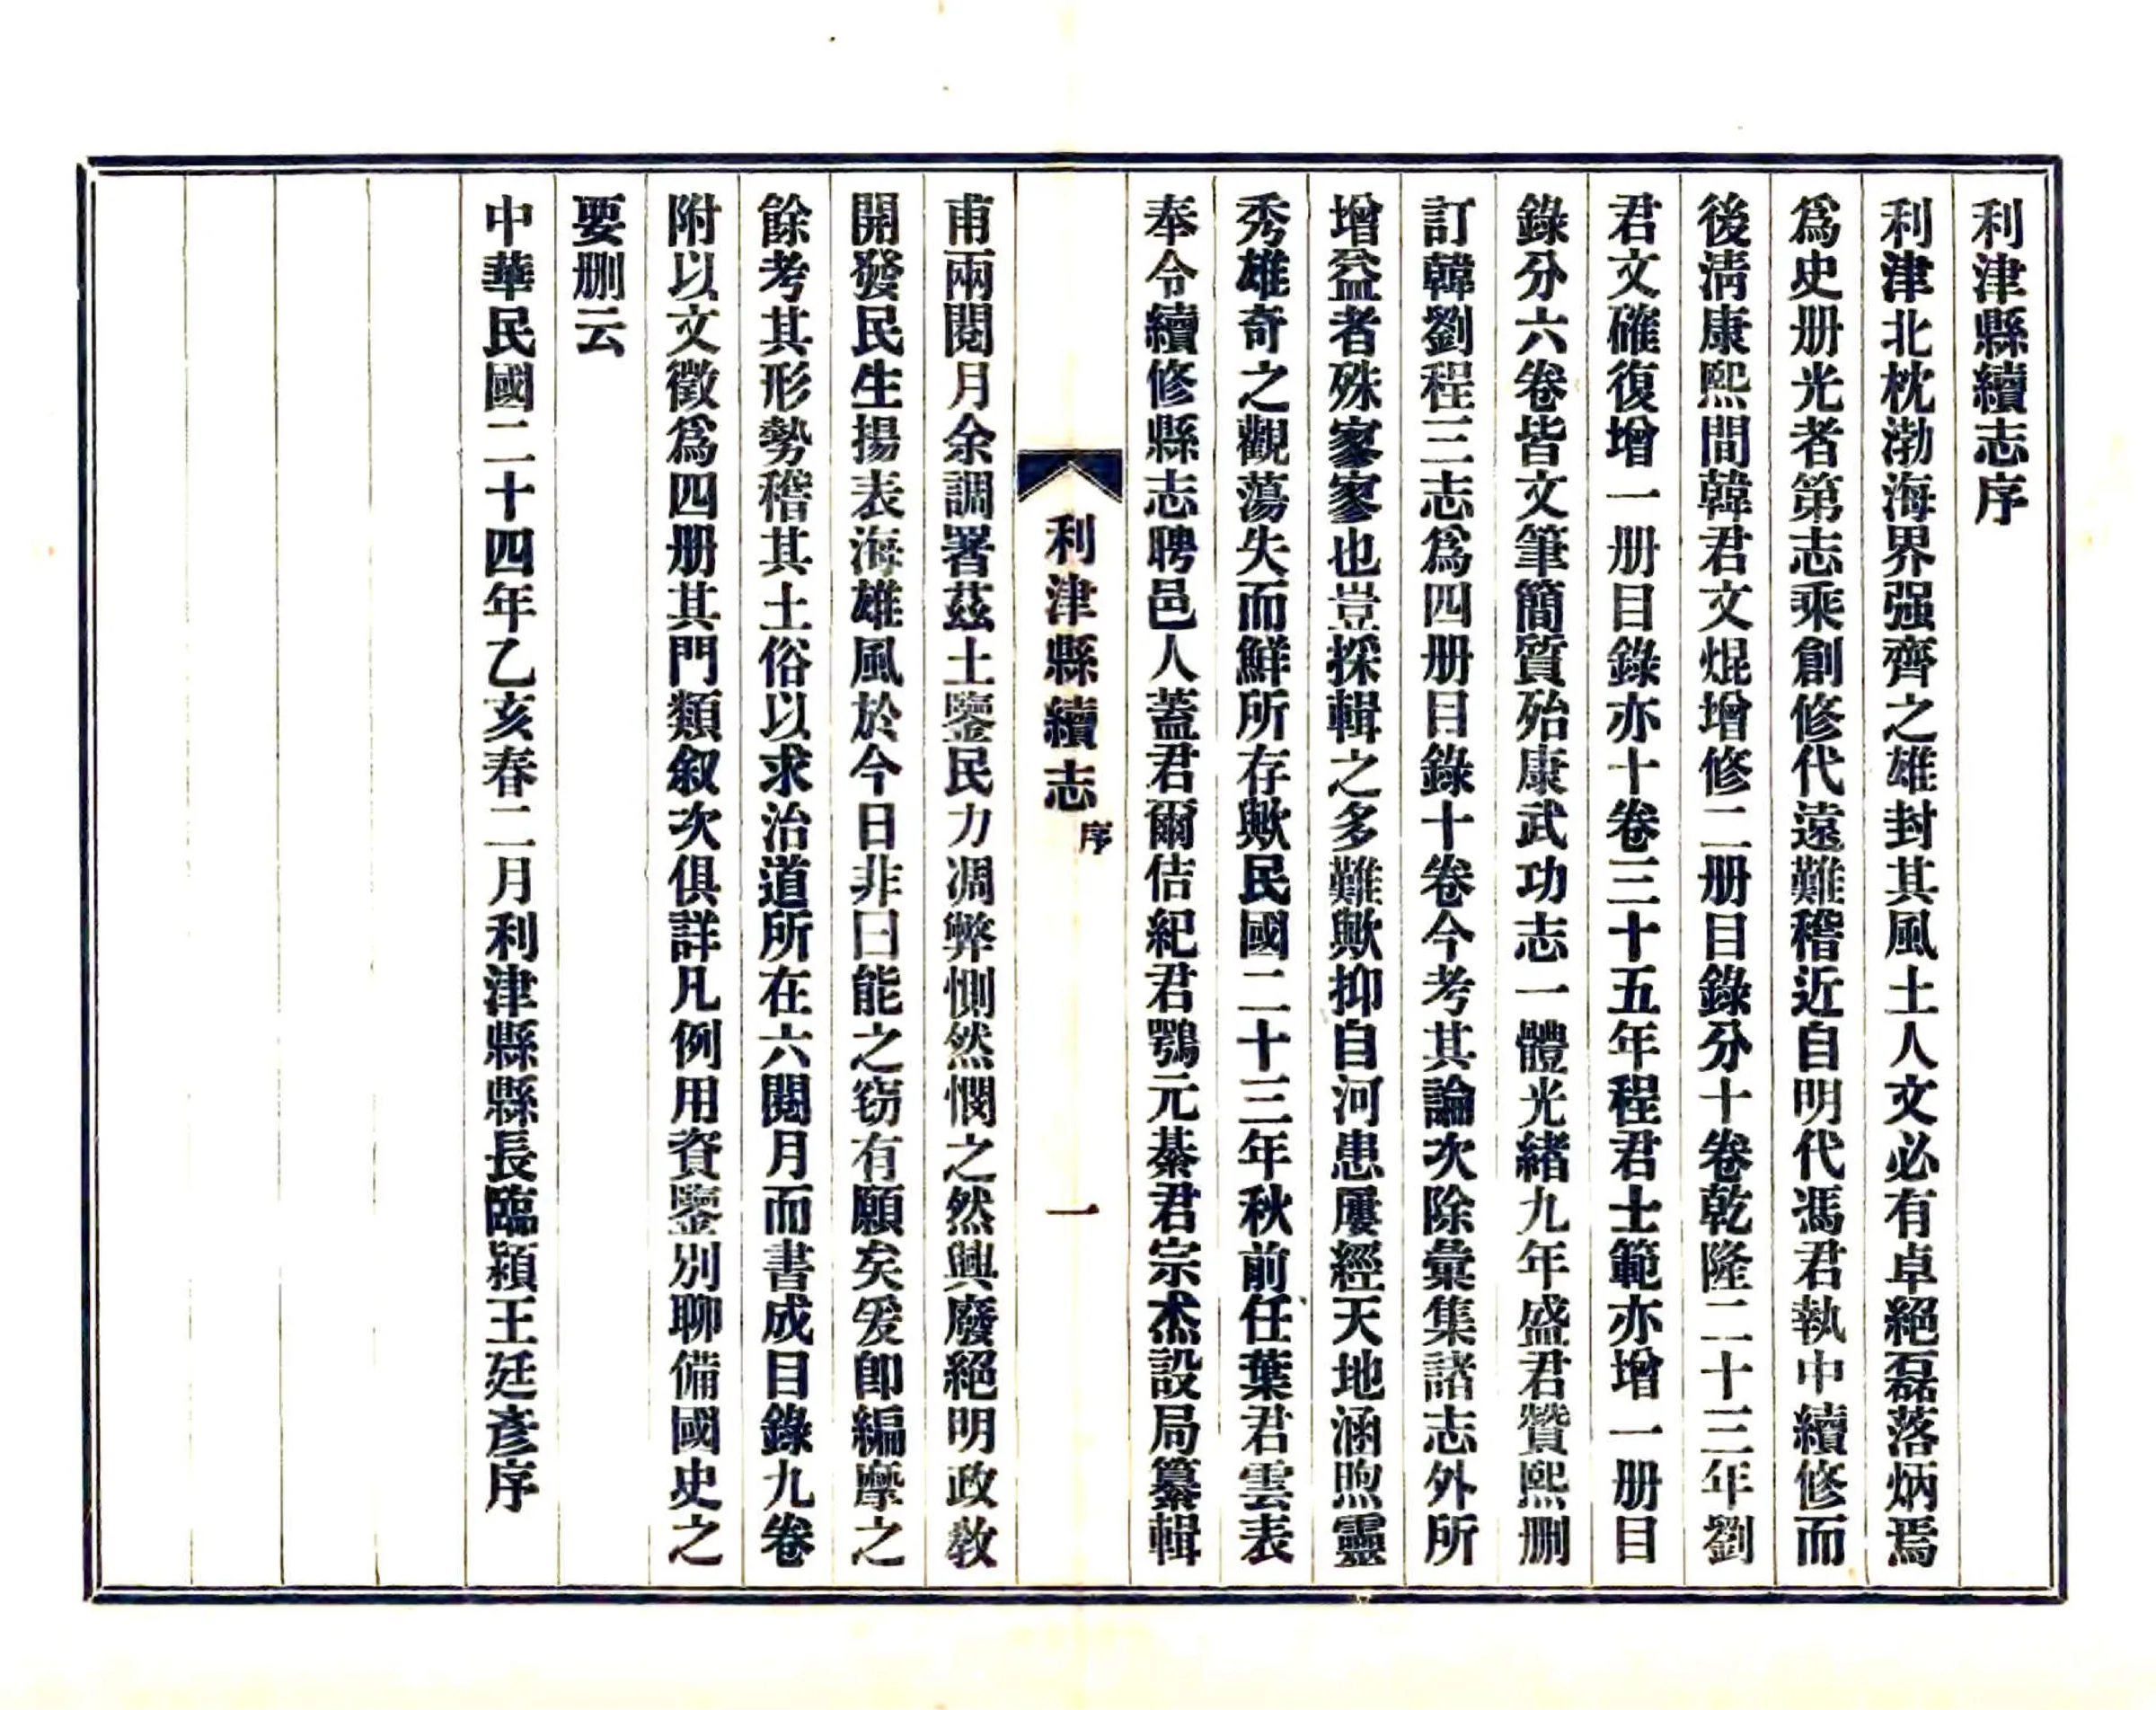 利津縣續志序
利津北枕渤海界强齊之雄封其風土人文必有卓絕磊落炳焉
爲史册光者第志乘創修代遠難稽近自明代馮君執中續修而
後淸康熙間韓君文焜增修二册目錄分十卷乾隆二十三年劉
君文確復增一册目錄亦十卷三十五年程君士範亦增一册目
錄分六卷皆文筆簡質殆康武功志一體光緒九年盛君贊熙删
訂韓劉程三志爲四册目錄十卷今考其論次除彙集諸志外所
增益者殊寥寥也豈採輯之多難歟抑自河患屢經天地涵煦靈
秀雄奇之觀蕩失而鮮所存歟民國二十三年秋前任葉君雲表
奉令續修縣志聘邑人蓋君爾佶紀君鶚元綦君宗杰設局纂輯
利津縣續志
序
一
甫兩閱月余調署茲土鑒民力凋弊惻然憫之然興廢絕明政敎
開發民生揚表海雄風於今日非曰能之窃有願矣爰卽編摩之
餘考其形勢稽其土俗以求治道所在六閱月而書成目錄九卷
附以文徵爲四册其門類叙次俱詳凡例用資鑒別聊備國史之
要删云
中華民國二十四年乙亥春二月利津縣縣長臨潁王廷彥序